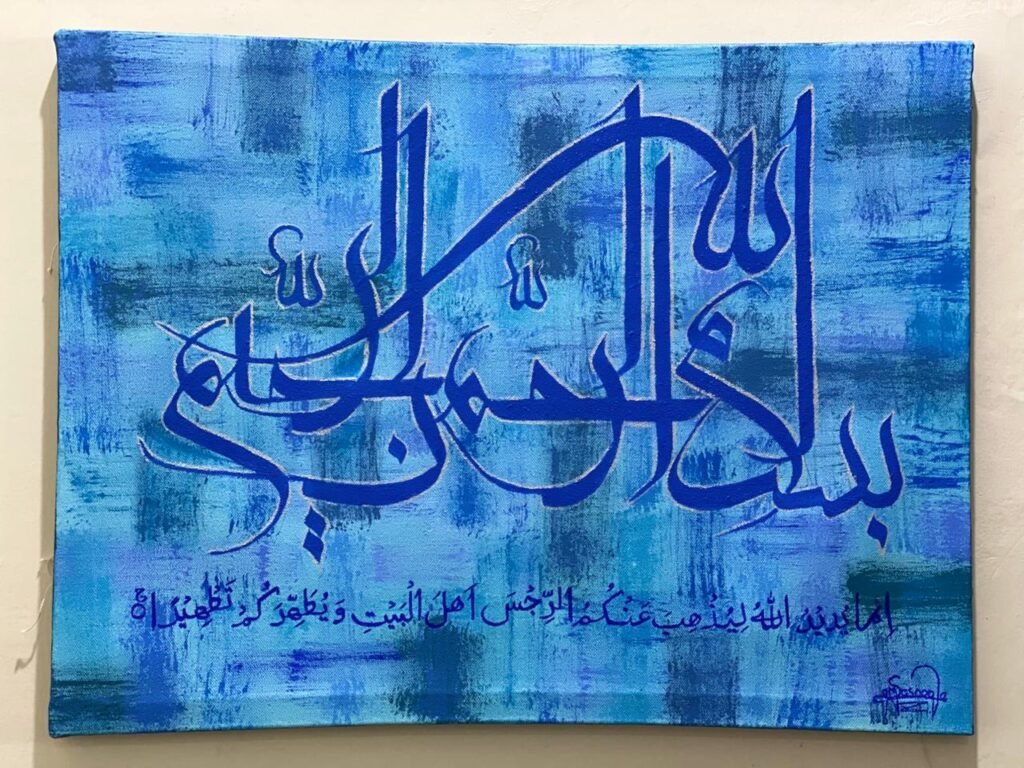 بسم الله الرحمن الرحيم
اِنما يُرِيْدُ اللّٰهُ لِيُذْهِبَ عَنْكُمُ الرِّجْسَ اَهْلَ الْبَيْتِ وَيُطَهِّرَكُمْ تَطْهِيْرًا